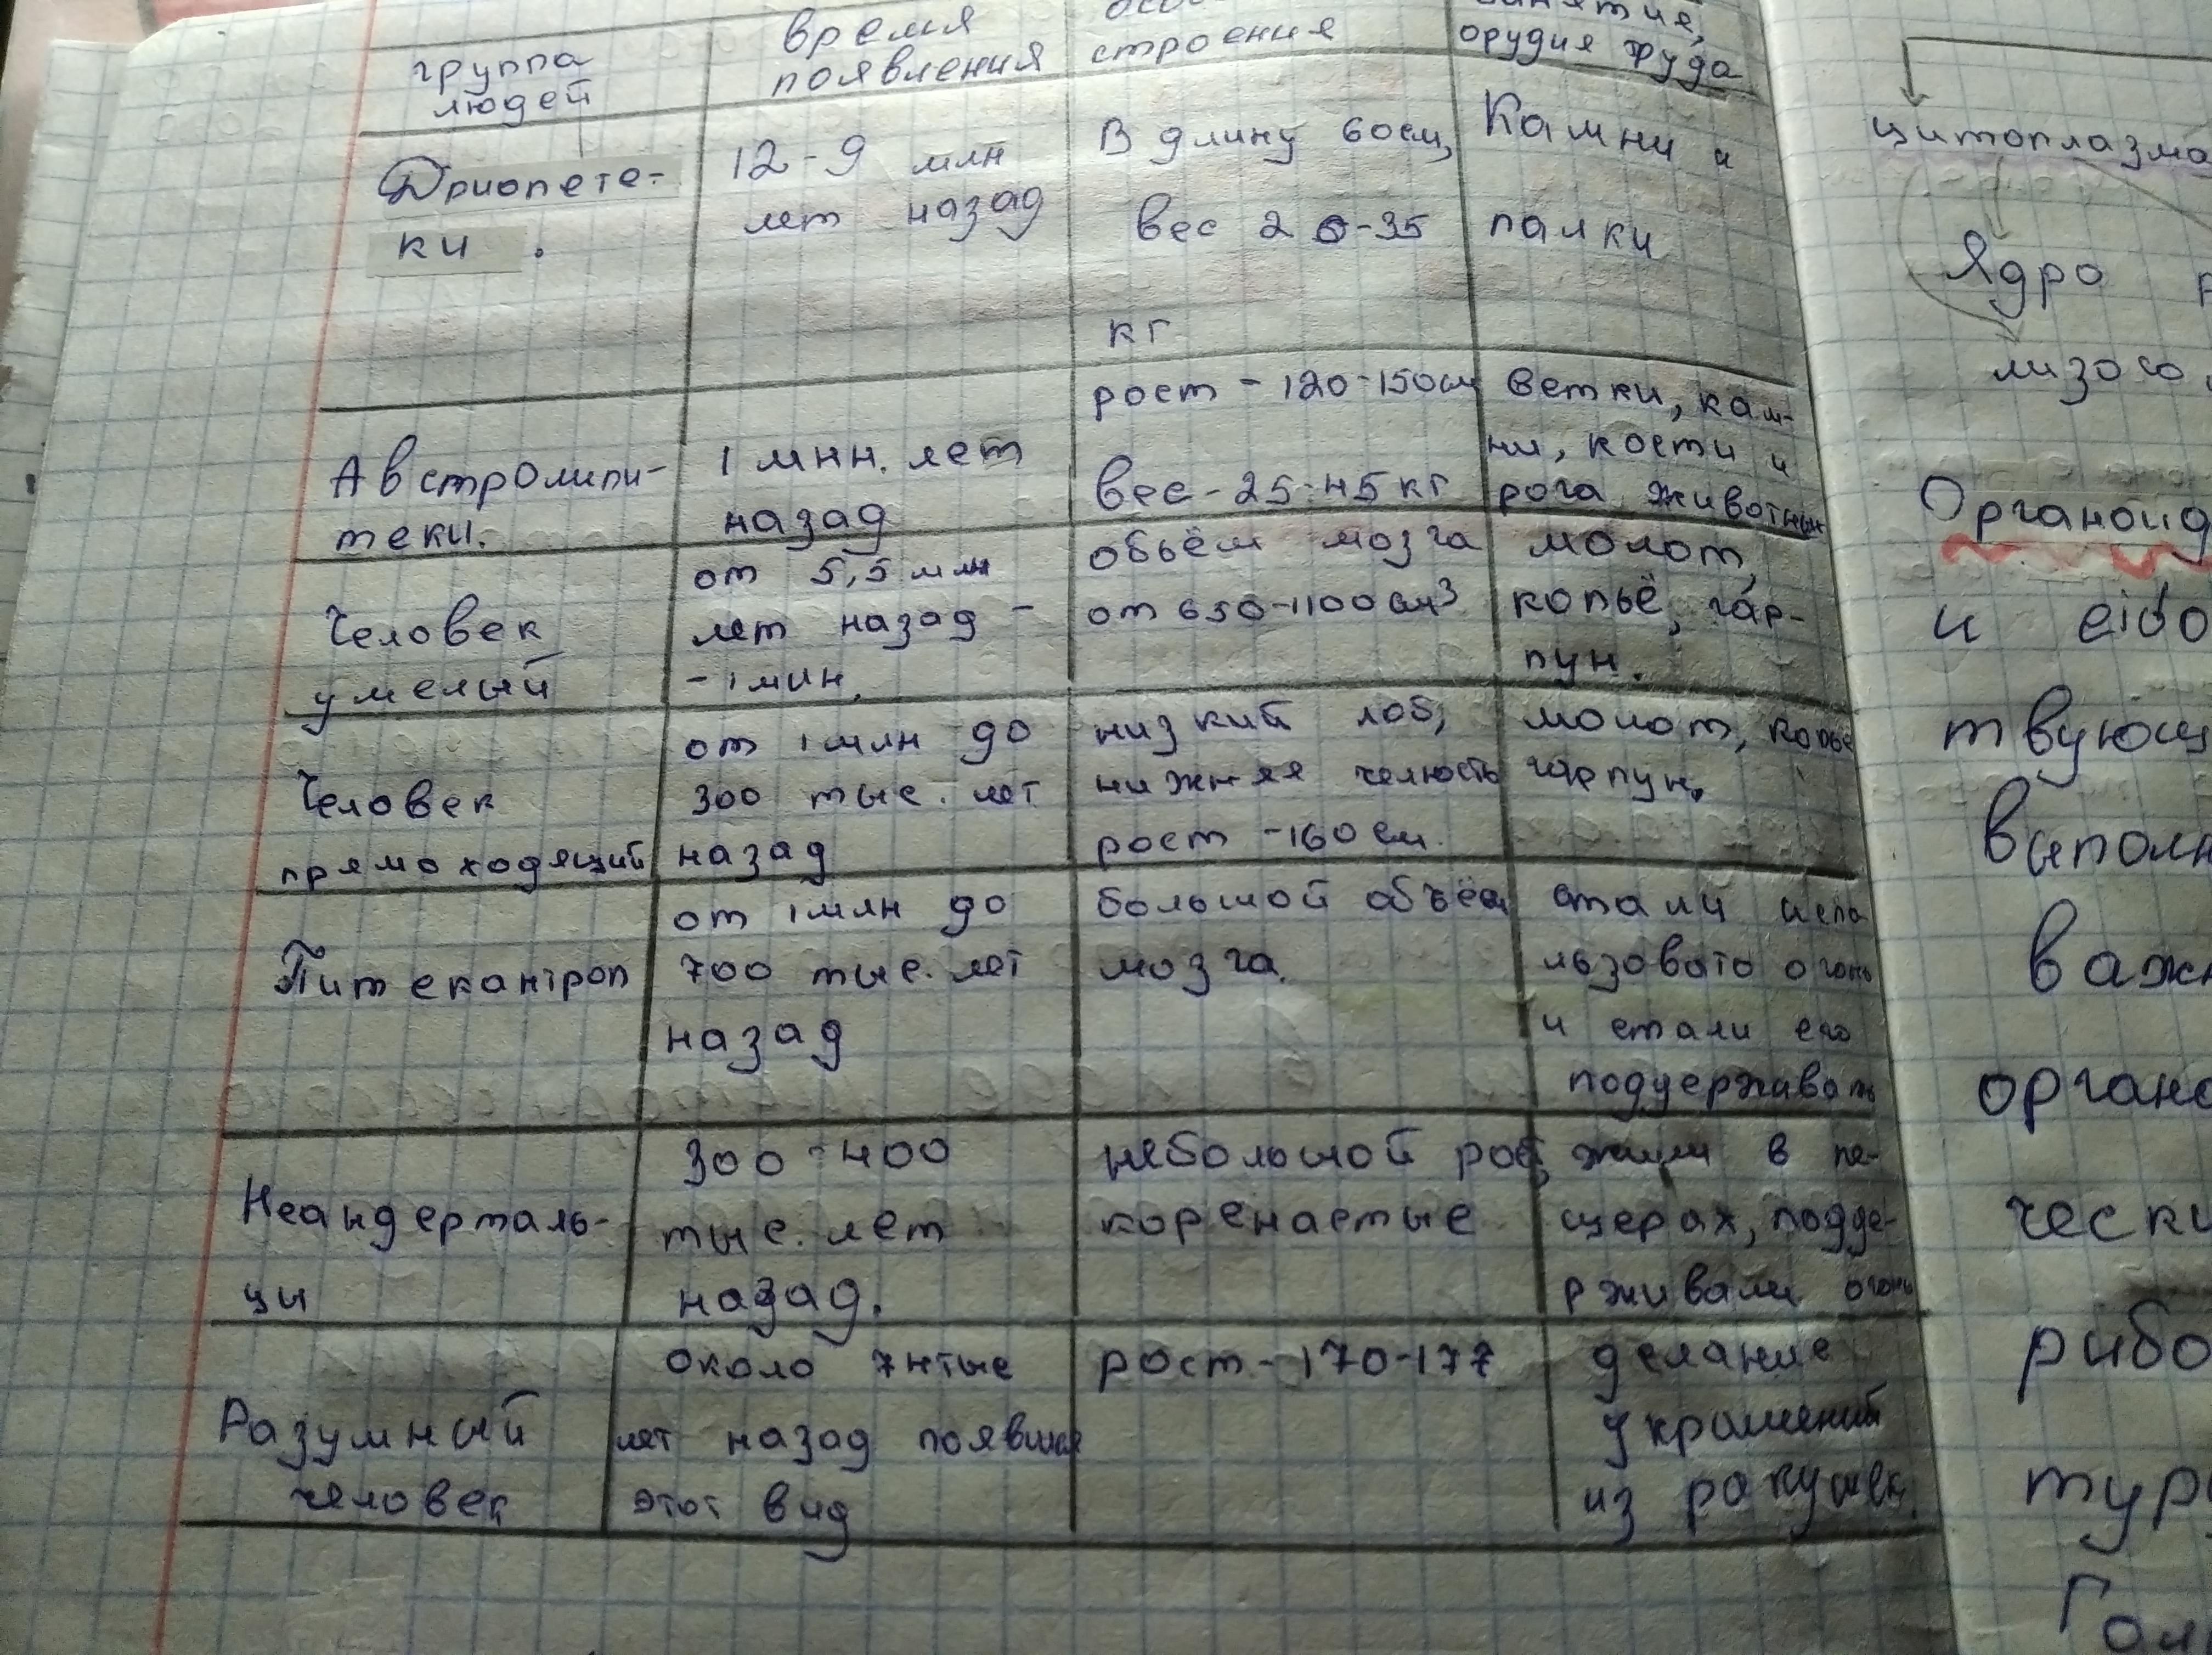 группа
людей
время
появления
строения
орудия труда
Дриопете-
ки.
12-9 млн
лет назад
В длину 60см,
вес 20-35
кг
Камни и
палки
Австролипи-
теки.
1 мнн. лет
назад
рост - 120-150см
вес - 25-45 кг
ветки, кам-
ни, кости и
рога животных
Человек
умелый
от 5,5 млн
лет назад -
- 1 млн.
объём мозга
от 650-1100см³
молот,
копьё, гар-
пун.
Человек
прямоходящий
от 1 млн до
300 тыс. лет
назад
низкий лоб,
нижняя челюсть
рост - 160 см.
молот, копье
гарпун.
Питекантроп
от 1 млн до
700 тыс. лет
назад
большой объём
мозга.
стали испо
льзовать огонь
и стали его
поддерживать
Неандерталь-
цы
300-400
тыс. лет
назад.
небольшой рост,
коренастые
жили в пе-
щерах, подде-
рживали огонь
Разумный
человек
около 74тыс
лет назад появился
этот вид
рост - 170-177
делание
украшений
из ракушек.
цитоплазма
Ядро
лизосо
Органоид
и eido
твующ
выполн
важн
органо
чески
рибо
тур